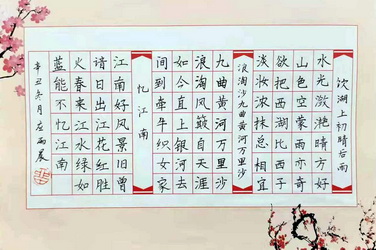 饮湖上初晴后雨
水光潋滟晴方好
山色空蒙雨亦奇
欲把西湖比西子
淡妆浓抹总相宜
浪淘沙九曲黄河万里沙
九曲黄河万里沙
浪淘风簸自天涯
如今直上银河去
间到牵牛织女家
忆江南
江南好风景旧曾
谙日出江花红胜
火春来江水绿如
蓝能不忆江南
辛丑冬月左雨晨